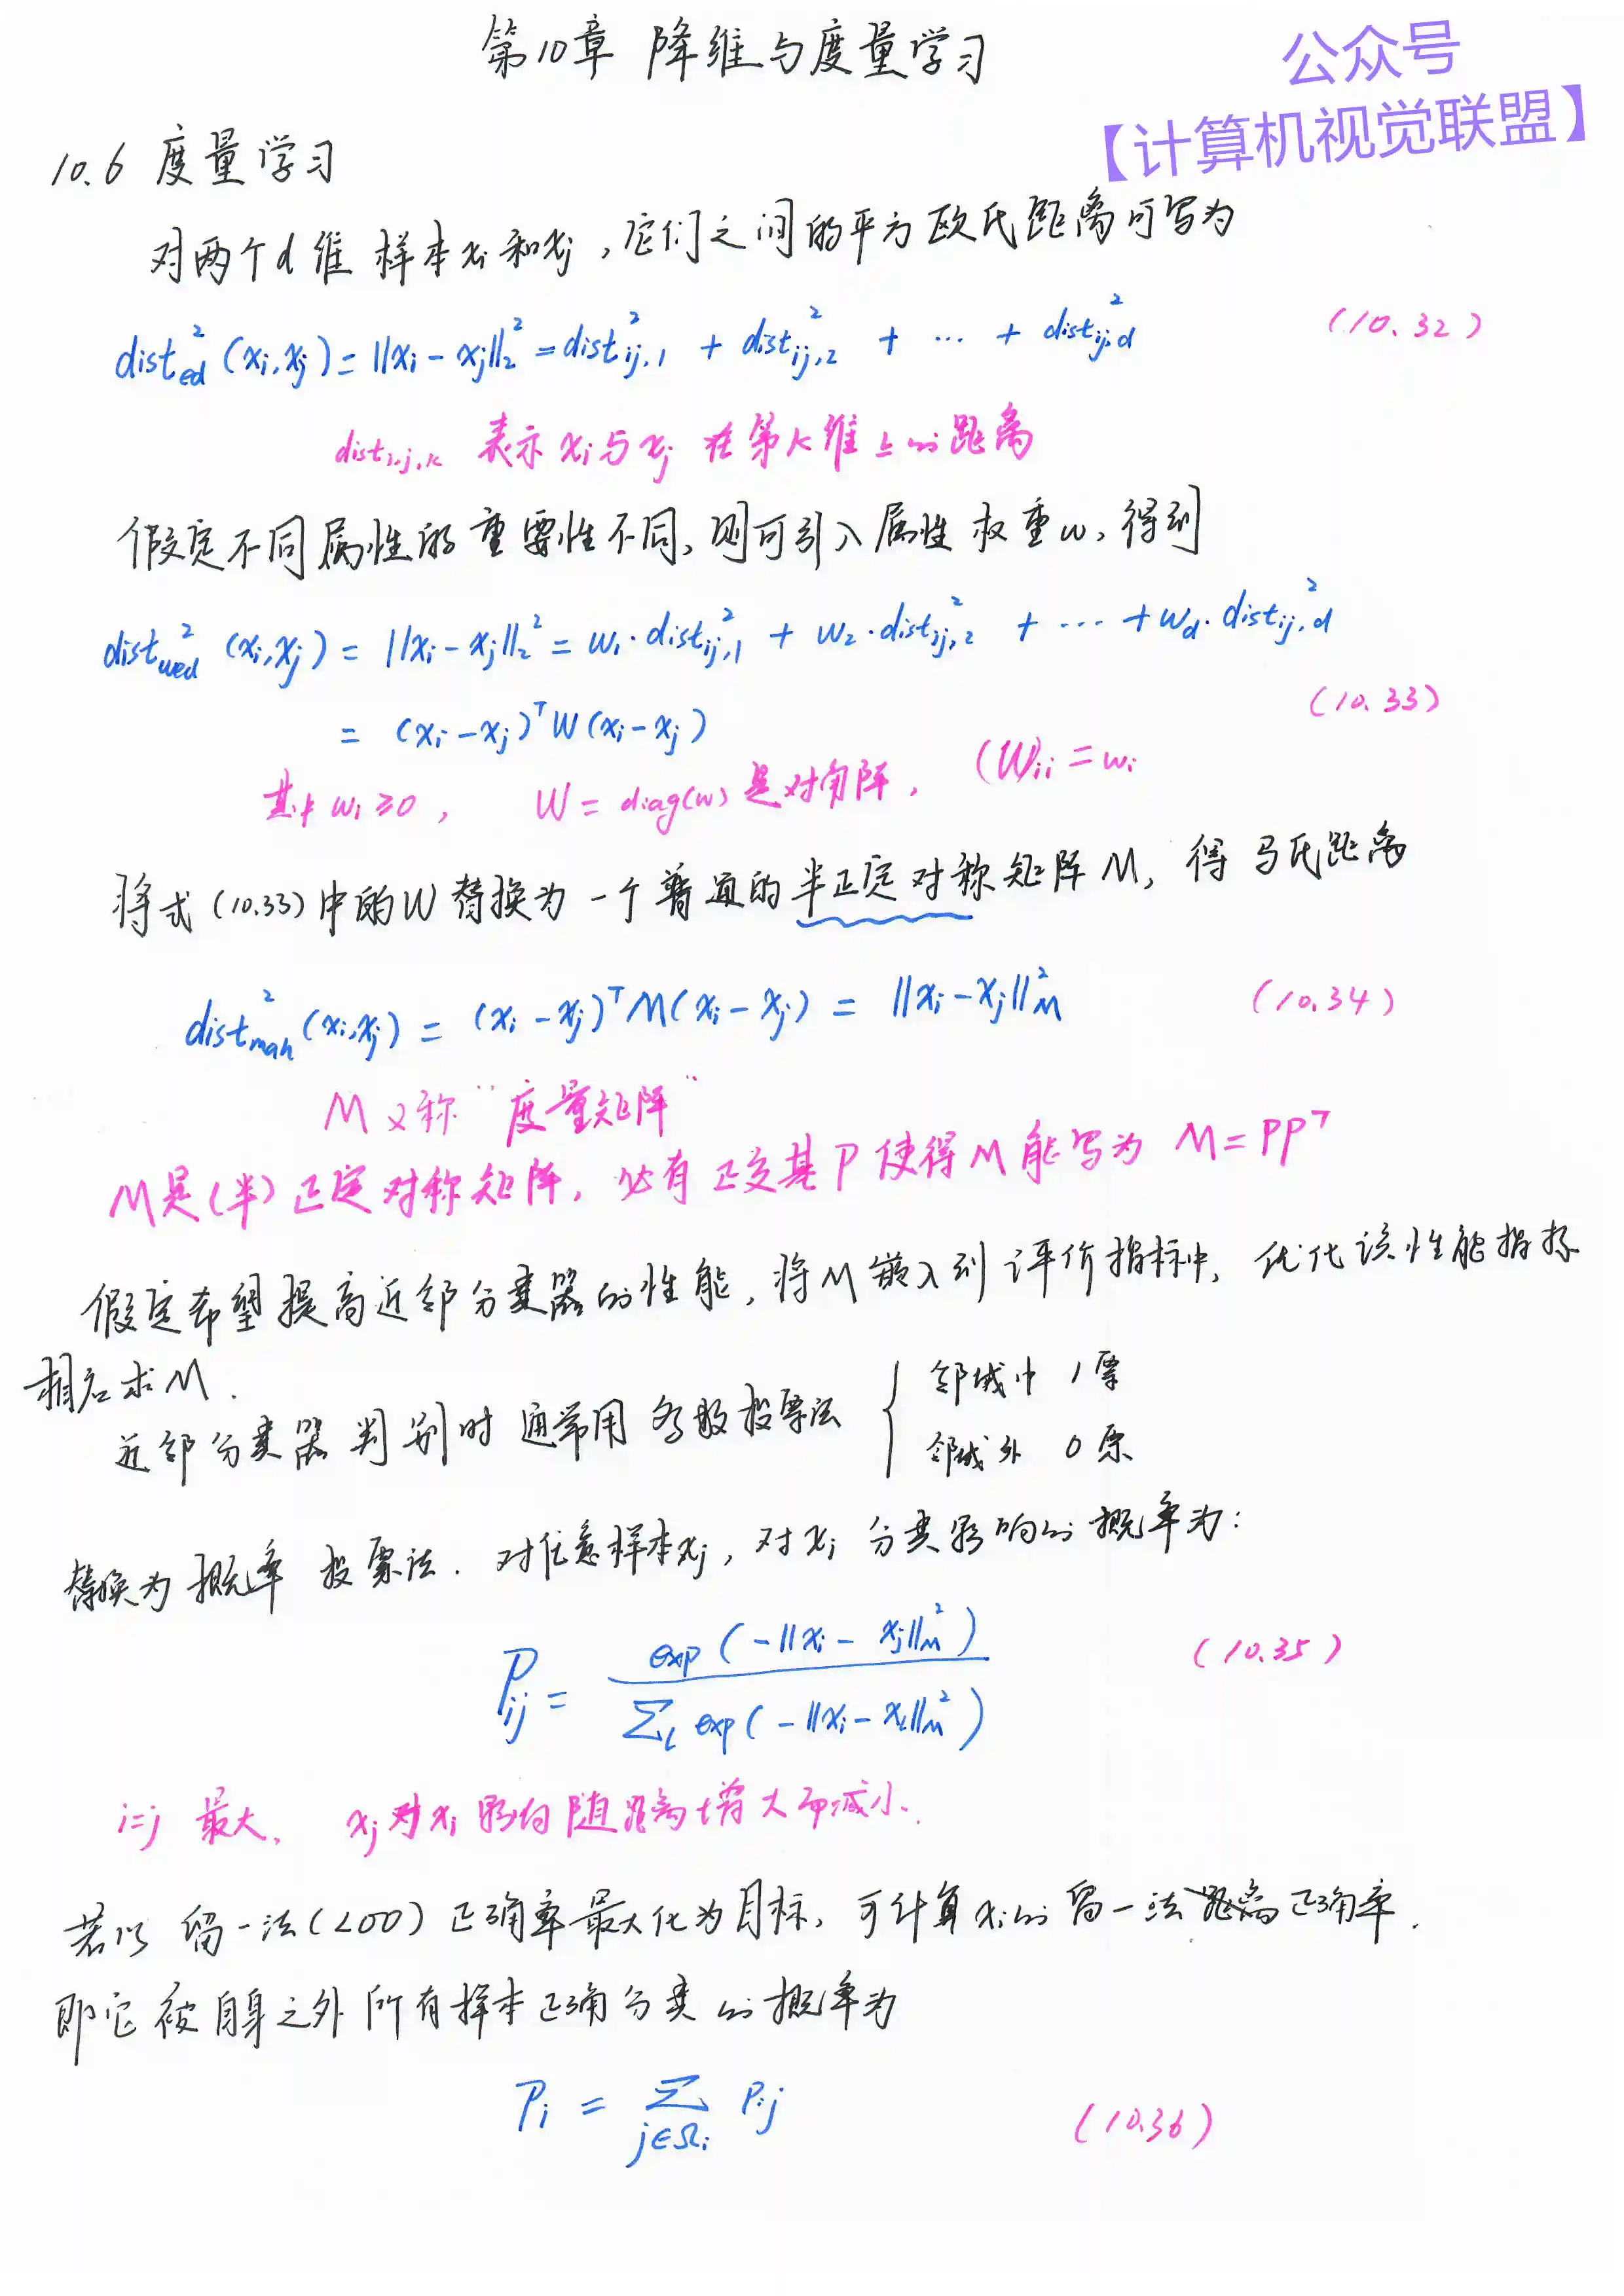 第10章 降维与度量学习
公众号
【计算机视觉联盟】
10.6 度量学习
对两个d维 样本xi和xj,它们之间的平方欧氏距离可写为
dist²ed (xi,xj) = ||xi - xj||₂² = dist²ij,1 + dist²ij,2 + ... + dist²ij,d (10.32)
distij,k 表示 xi与xj 在第k维上的距离
假定不同属性的重要性不同,则可引入属性权重w,得到
dist²wed (xi,xj) = ||xi - xj||₂² = w₁·dist²ij,1 + w₂·dist²ij,2 + ... + wd·dist²ij,d
= (xi - xj)ᵀW(xi - xj) (10.33)
其中 wi ≥ 0, W = diag(w) 是对角阵, (W)ii = wi
将式(10.33)中的W替换为一个普通的半正定对称矩阵M,得马氏距离
dist²mah (xi,xj) = (xi - xj)ᵀM(xi - xj) = ||xi - xj||²M (10.34)
M又称“度量矩阵”
M是(半)正定对称矩阵,必有正交基P使得M能写为 M = PPᵀ
假定希望提高近邻分类器的性能,将M嵌入到评价指标中,优化该性能指标
相应求M.
近邻分类器判别时通常用多数投票法 { 邻域中 1票
邻域外 0票
替换为概率投票法.对任意样本xj,对xi分类影响的概率为:
Pij = exp(-||xi - xj||²M) / Σl exp(-||xi - xl||²M) (10.35)
i=j 最大, xj对xi影响随距离增大而减小.
若以留一法(LOO)正确率最大化为目标,可计算xi的留一法距离正确率.
即它被自身之外所有样本正确分类的概率为
Pi = Σ j∈Ωi Pij (10.36)